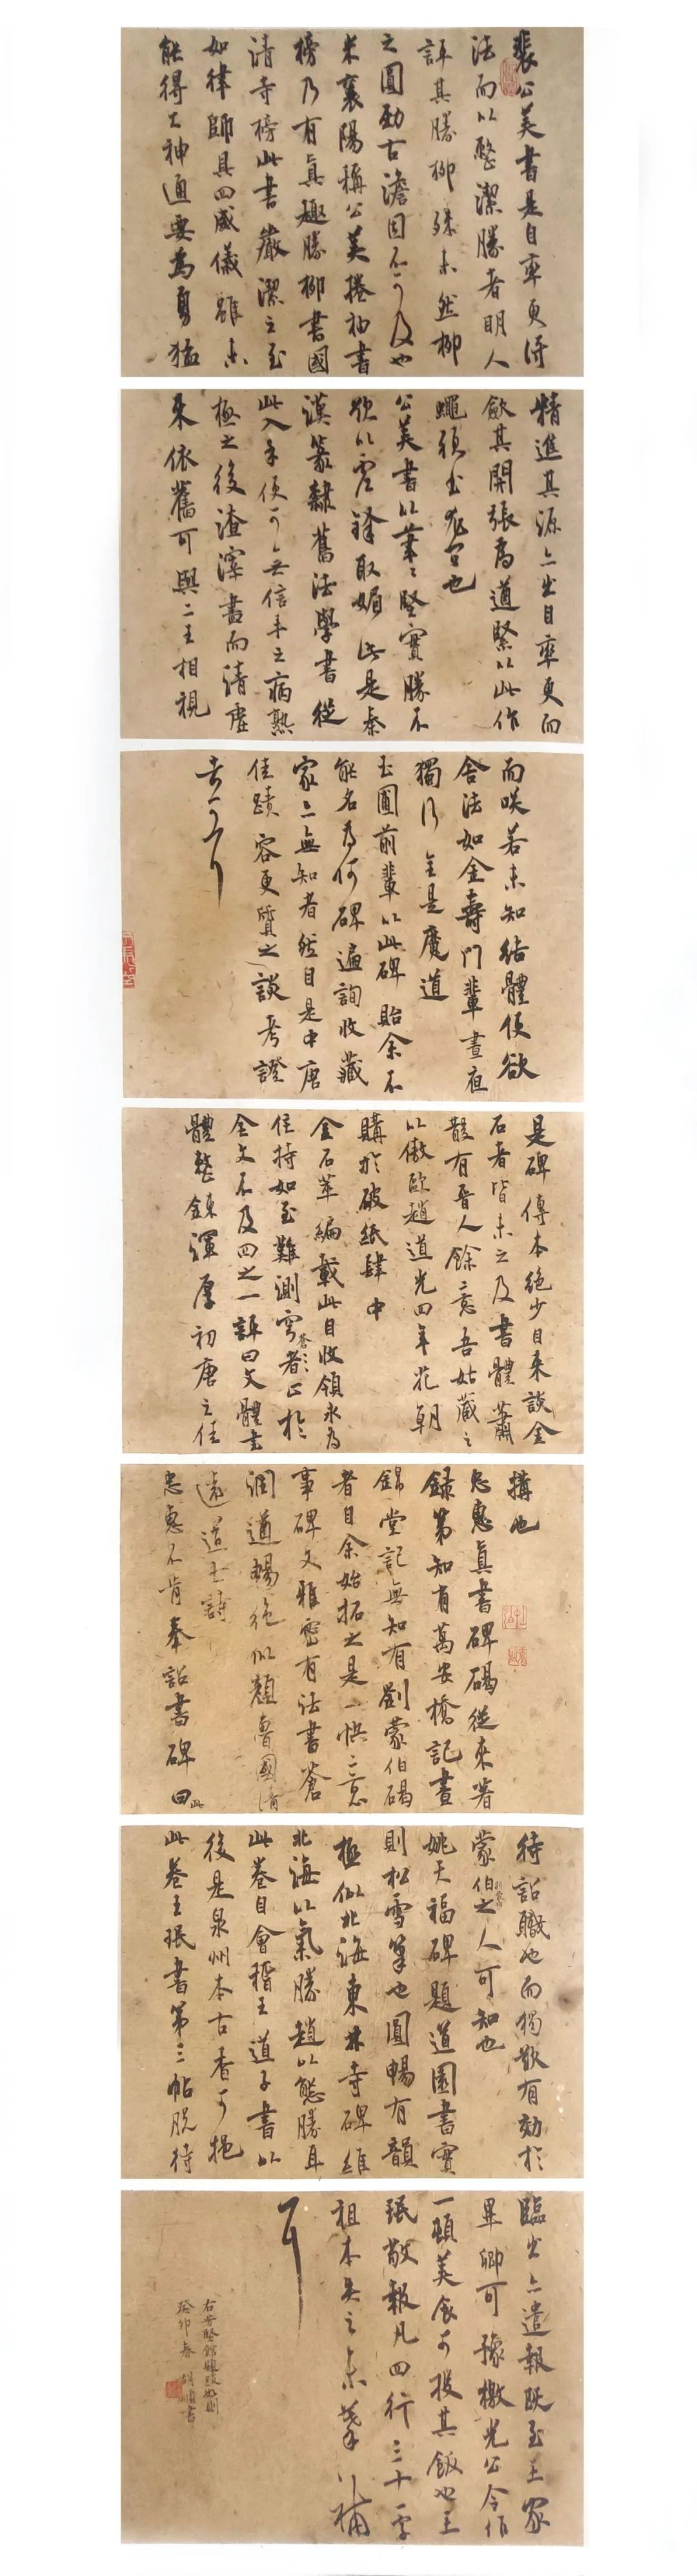 裴公美書是自率更得
法而以整潔勝者明人
評其勝柳殊未然柳
之圓勁古澹固不可及也
米襄陽稱公美捲袖書
榜乃有真趣勝柳書國
清寺榜此書嚴潔之至
如律師具四威儀雖未
能得大神通要為勇猛
精進其源亦出自率更而
斂其開張為遒緊以此作
蠅頭書尤宜也
公美書以筆筆堅實勝不
欲以虛鋒取媚此是秦
漢篆隸舊法學書從
此入手便可無信手之病熟
極之後渣滓盡而清虛
來依舊可與二王相視
而咲若未知結體便欲
舍法如金壽門輩晝夜
獨行全是魔道
玉圃前輩以此碑貽余不
能名為何碑遍詢收藏
家亦無知者然自是中唐
佳蹟容更質之談考證
者可耳
是碑傳本絕少自來談金
石者皆未之及書體蕭
散有晉人餘意吾姑藏之
以傲歐趙道光四年花朝
購於破紙肆中
金石萃編載此自收領永為
住持如至難測穹蒼者止於
全文不及四之一評曰文體書
體整鍊渾厚初唐之佳
搆也
忠惠真書碑碣從來著
錄第知有萬安橋記晝
錦堂記無知有劉蒙伯碣
者自余始拓之是一快意
事碑文雅密有法書蒼
潤遒暢絕似顏魯國清
遠道士詩
忠惠不肯奉詔書碑曰此
待詔職也而獨欣有効於
蒙伯之人可知也
姚天福碑題道園書實
則松雪筆也圓暢有韻
極似北海東林寺碑維
北海以氣勝趙以態勝耳
此卷自會稽王道子書以
後是泉州本古香可挹
此卷王珉書第三帖脫待
臨出亦遣報既至王家
畢卿可豫檄光公令作
一頓美食可投其飯也王
珉敬報凡四行三十一字
祖本失之未摹以補
耳
癸卯春 胡順書